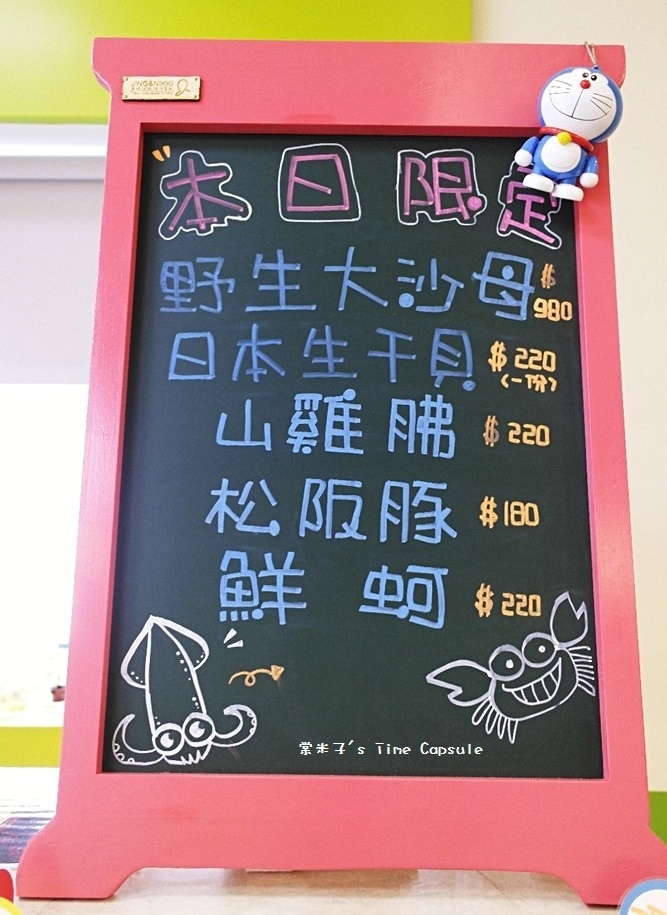 JING&NIKO
本日限定
野生大沙母 $980
日本生干貝 $220
(一份)
山雞腿 $220
松阪豚 $180
鮮蚵 $220
棠米子's Time Capsule